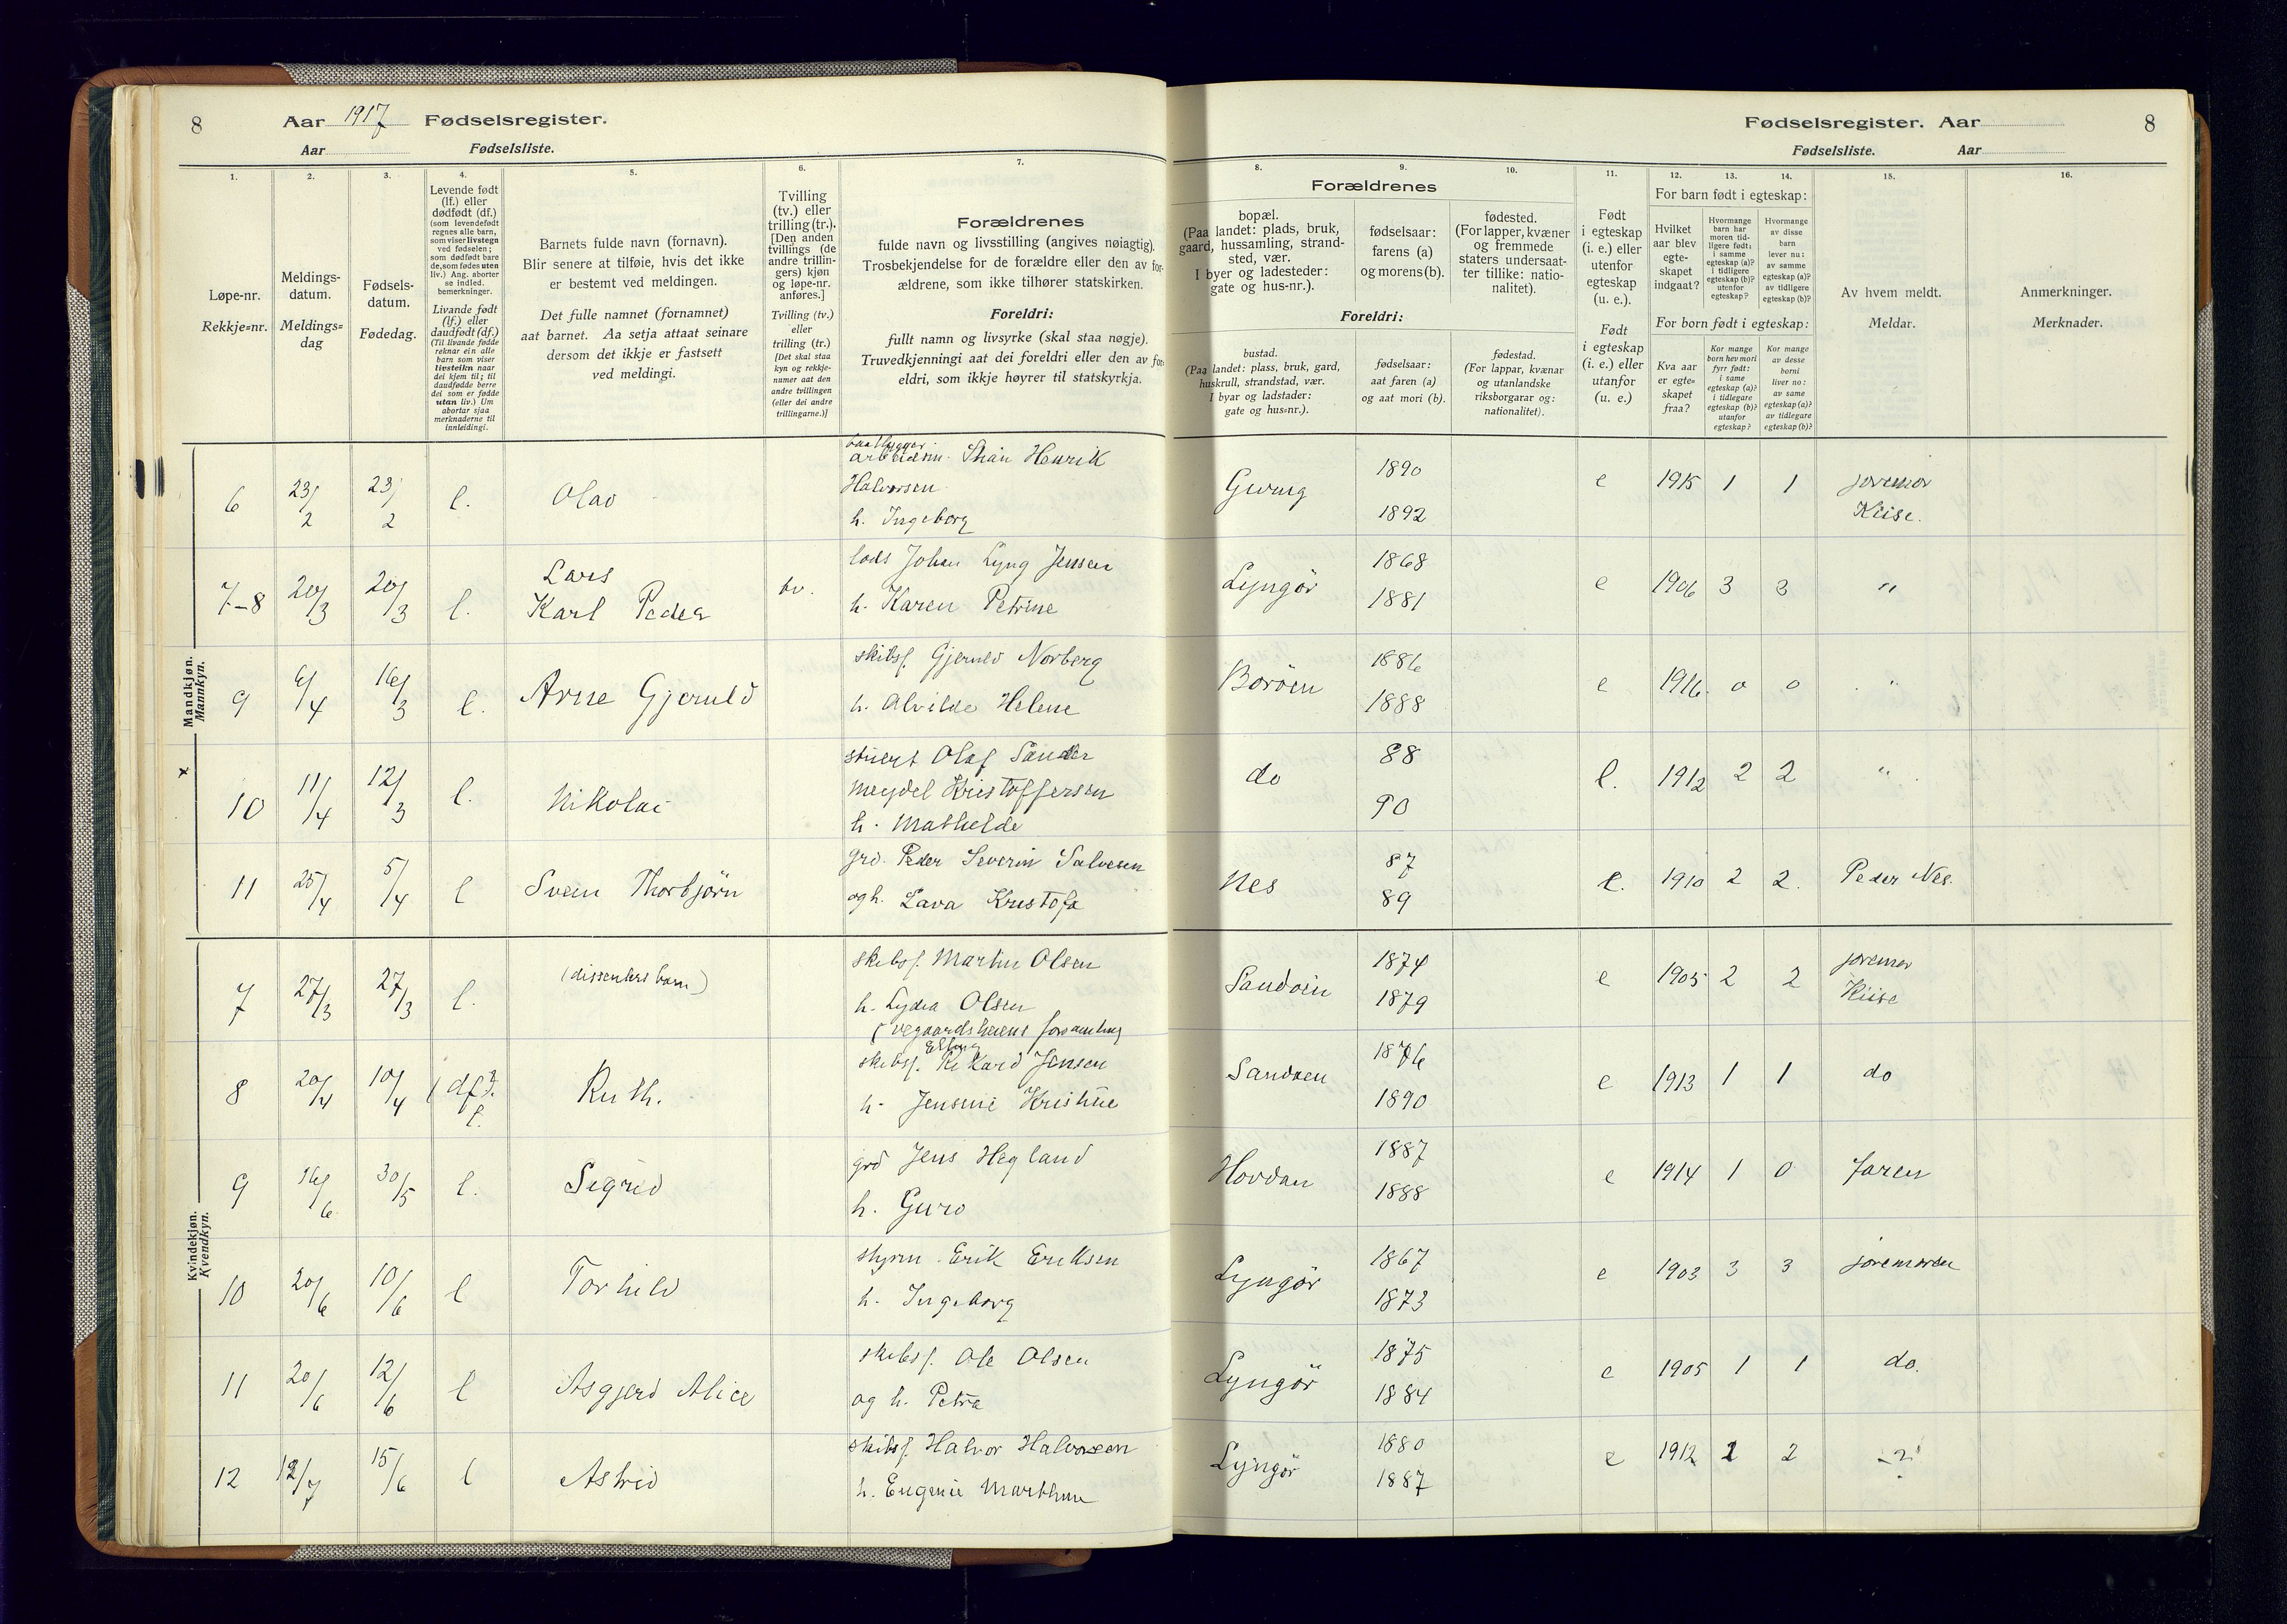 8 Aar 1917 Fødselsregister.
Aar Fødselsliste.
1.
Løpe-nr.
Rekkje=nr.
2.
Meldings-
datum.
Meldings=
dag
3.
Fødsels-
datum.
Fødedag.
4.
Levende født
(lf.) eller
dødfødt (df.)
(som levendefødt
regnes alle barn,
som viser livstegn
ved fødselen;
som dødfødt bare
de, som fødes uten
liv.) Ang. aborter
se indled.
bemerkninger.
Livande født
(lf.) eller
daudfødt (df.)
(Til livande fødde
reknar ein alle
barn som viser
livsteikn naar
dei kjem til; til
daudfødde berre
dei som er fødde
utan liv.) Um
abortar sjaa
merknaderne til
innleidingi.
5.
Barnets fulde navn (fornavn).
Blir senere at tilføie, hvis det ikke
er bestemt ved meldingen.
Det fulle namnet (fornamnet)
aat barnet. Aa setja attaat seinare
dersom det ikkje er fastsett
ved meldingi.
6.
Tvilling
(tv.) eller
trilling (tr.).
[Den anden
tvillings (de
andre trillin-
gers) kjøn
og løpe-nr.
anføres.]
Tvilling (tv.)
eller
trilling (tr.)
[Det skal staa
kyn og rekkje-
numer aat den
andre tvillingen
(eller dei andre
trillingarne.)]
7.
Forældrenes
fulde navn og livsstilling (angives nøiagtig).
Trosbekjendelse for de forældre eller den av for-
ældrene, som ikke tilhører statskirken.
Foreldri:
fullt namn og livsyrke (skal staa nøgje).
Truvedkjenningi aat dei foreldri eller den av for-
eldri, som ikkje høyrer til statskyrkja.
Fødselsregister. Aar 8
Fødselsliste. Aar
8.
Forældrenes
bopæl.
(Paa landet: plads, bruk,
gaard, hussamling, strand-
sted, vær.
I byer og ladesteder:
gate og hus-nr.).
9.
fødselsaar:
farens (a)
og morens (b).
10.
fødested.
(For lapper, kvæner
og fremmede
staters undersaat-
ter tillike: natio-
nalitet).
Foreldri:
bustad.
(Paa landet: plass, bruk, gard,
huskrull, strandstad, vær.
I byar og ladstader:
gate og hus=nr.).
fødselsaar:
aat faren (a)
og aat mori (b).
fødestad.
(For lappar, kvænar
og utanlandske
riksborgarar og:
nationalitet).
11.
Født
i egteskap
(i. e.) eller
utenfor
egteskap
(u. e.).
Født
i egteskap
(i. e.) eller
utanfor
(u. e.)
12. 13. 14.
For barn født i egteskap:
Hvilket
aar blev
egte-
skapet
indgaat?
Hvormange
barn har
moren tid-
ligere født:
i samme
egteskap (a)?
i tidligere
egteskap (b)?
utenfor
egteskap?
Hvormange
av disse
barn
lever nu:
av samme
egteskap (a)?
av tidligere
egteskap (b)?
For born født i egteskap:
Kva aar
er egte=
skapet
fraa?
Kor mange
born hev mori
fyrr født:
i same
egteskap (a)?
i tidlegare
egteskap (b)?
utanfor
egteskap?
Kor mange
av desse
borni
liver no:
av same
egteskap (a)?
av tidlegare
egteskap (b)?
15.
Av hvem meldt.
Meldar.
16.
Anmerkninger.
Merknader.
Mandkjøn.
Mannkyn.
6 23/2 23/2 l. Olav Henrik
Halvorsen
h. Ingeborg
1890 1892 e 1915 1 1 joremor
7-8 20/3 20/3 l. Lars
Karl Peder tv. lods Johan Lyng Jensen
h. Karen Petrine
Lyngör 1868 1881 e 1906 3 3 "
9 6/4 16/3 l. Arne Gjeruld skibsf. Gjeruld Norberg
h. Alvilde Helene
Boröen 1886 1888 e 1916. 0 0 "
x
10 11/4 12/3 l. Nikolai stuert Olaf Sander
Meydel Kristoffersen
h. Mathilde
do 88 90 e. 1912 2 2 "
11 25/4 5/4 l Svein Thorbjörn grd. Peder Severin Salvesen
og h. Lava Kristofa
Nes 87 89 e. 1910 2 2. Peder Nes.
Kvindekjøn.
Kvendkyn.
7 27/3 27/3 l. (dissenters barn) skibsf. Martin Olsen
h. Lydia Olsen
(Vegaardsheiens forsamling
Sandöen 1874 1879 e 1905 2 2 joremor
8 20/4 10/4 (df?). l. Ruth. skibsf. Rikard Jensen
h. Jensine Kristine
Sandöen 1876 1890 e 1913 1 1 do
9 16/6 30/5 l. Sigrid grd Jens Hegland
h. Guro
Hovdan 1887 1888 e 1914 1 0 faren
10 20/6 10/6 l Torhild styrm. Erik Eriksen
h. Ingeborg
Lyngör 1867 1873 e 1903 3 3 joremoren
11 20/6 12/6 l Asgjerd Alice skibsf. Ole Olsen
og h. Petra
Lyngör 1875 1884 e 1905 1 1 do.
12 12/7 15/6 l Astrid skibsf. Halvor Halvorsen
h. Eugenie Marthine
Lyngör 1880 1887 e 1912 2 2 - " -